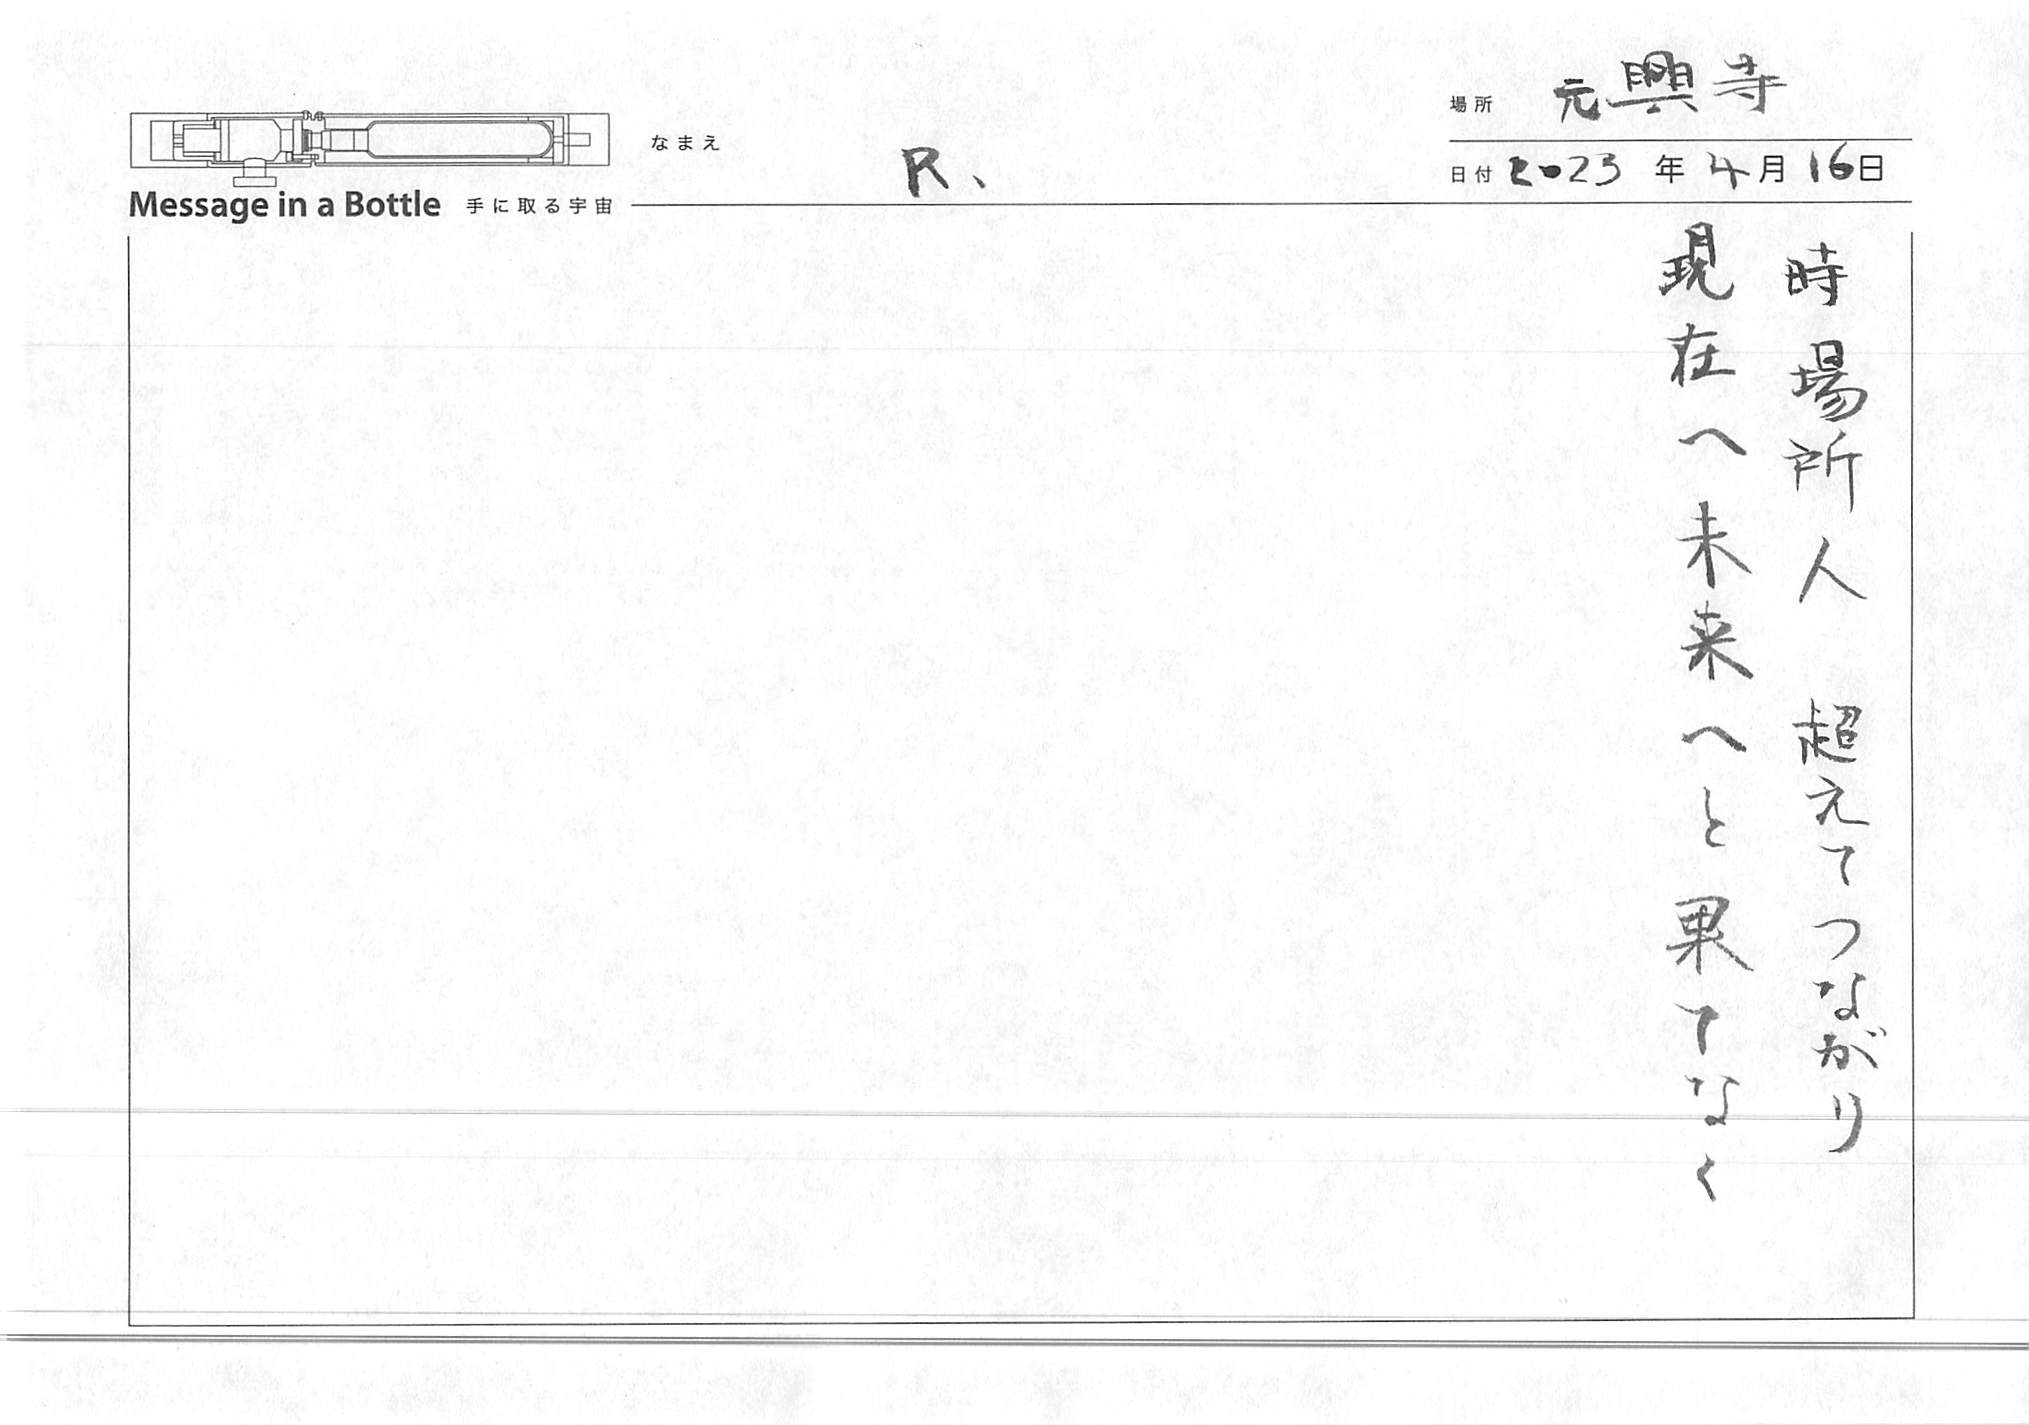 場所 元興寺
なまえ R、
日付 2023年4月16日
Message in a Bottle 手に取る宇宙
時場所人 超えてつながり
現在へ未来へと果てなく